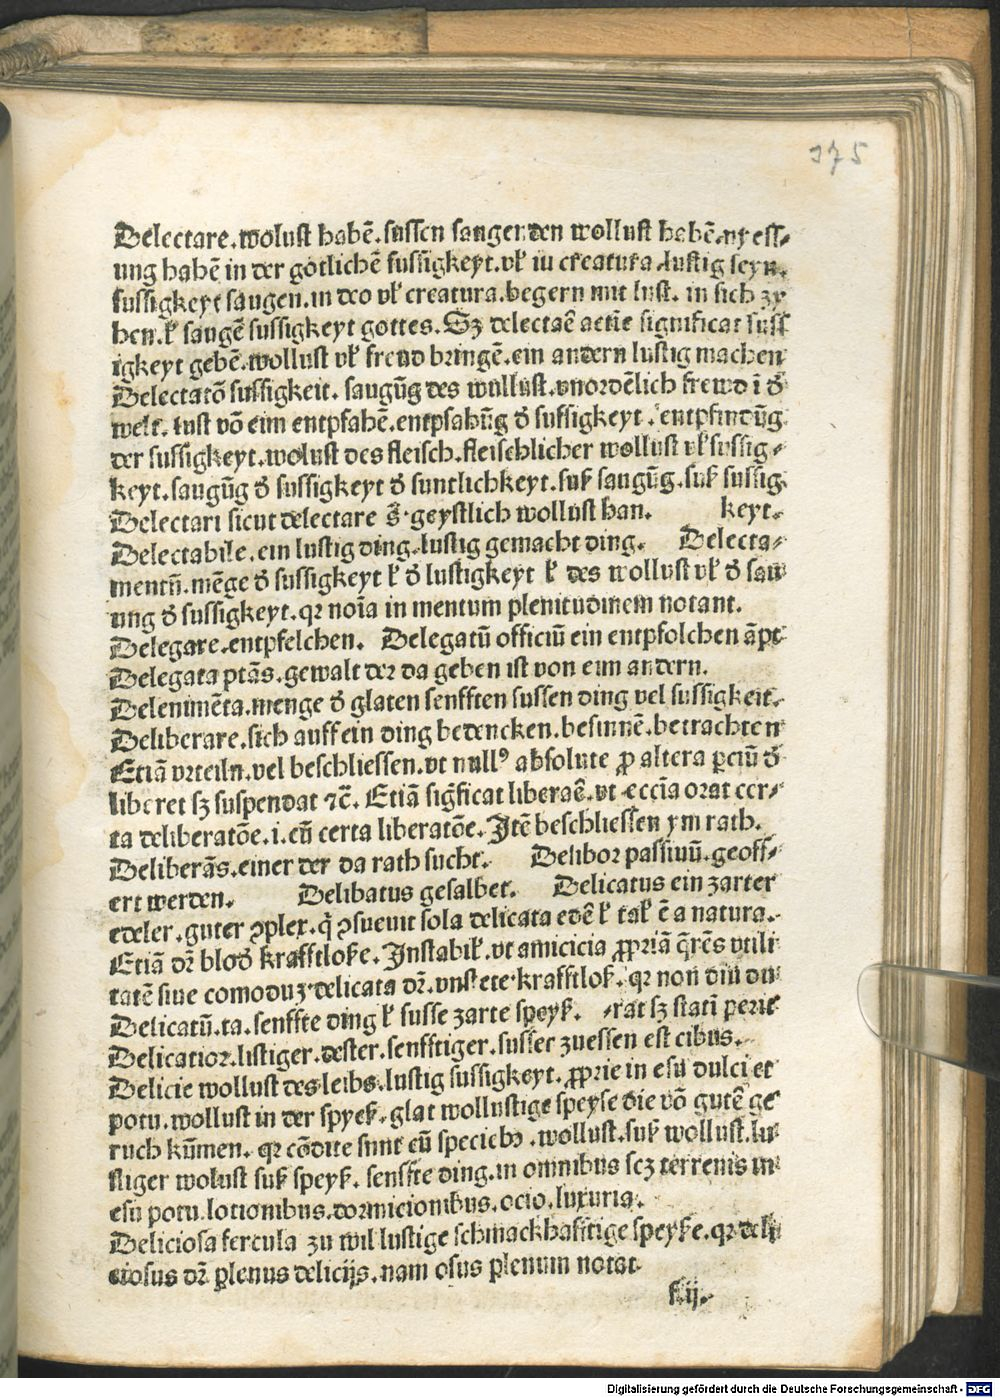 175
Delectare.wolust habē.sussen saugen den wollust habē.nyess⸗
ung habē in der gotlichē sussigkeyt.vꝉ in creatura.lustig seyn.
sussigkeyt saugen.in deo vꝉ creatura.begern mit lust. in sich zy
hen.ꝉ saugē sussigkeyt gottes.Sz delectaē actīe significat suss
igkeyt gebē.wollust vꝉ freud bringē.ein andern lustig machen
Delectatō sussigkeit. saugūg des wullust.vnordēlich frewd ī đ
welt. lust vō eim entpfahē.entpfahūg đ sussigkeyt. entpfindūg
der sussigkeyt.wolust des fleisch.fleischlicher wollust vꝉ sussig⸗
keyt.saugūg đ sussigkeyt đ suntlichkeyt.suß saugūg.suß sussig
Delectari sicut delectare s̄·geystlich wollust han. keyt.
Delectabile.ein lustig ding.lustig gemacht ding. Delecta⸗
mentū.mēge đ sussigkeyt ꝉ đ lustigkeyt ꝉ des wollust vꝉ đ sau
ung đ sussigkeyt.qꝛ noīa in mentum plenitudinem notant.
Delegare.entpfelchen. Delegatū officiū ein entpfolchen āpt
Delegata ptās.gewalt der da geben ist von eim andern.
Delenimēta.menge đ glaten senfften sussen ding vel sussigkeit.
Deliberare.sich auff ein ding bedencken.besinnē.betrachten
Etiā vrteiln.vel beschliessen.vt nullꝰ absolute ꝓ altera ꝑciū đ
liberet sz suspendat ⁊c̄. Etiā siḡficat liberaē.vt eccīa orat cer⸗
ta deliberatōe.i.cū certa liberatōe.Itē beschliessen ym rath.
Deliberās.einer der da rath sucht. Delibor passiuū.geoff⸗
ert werden. Delibatus gesalbet. Delicatus ein zarter
edeler.guter ꝯplex.q̄ ꝯsueuit sola delicata edē ꝉ tał ē a natura.
Etiā dꝛ̄ blođ krafftloße.Instabił.vt amicicia ꝓpriā q̄rēs vtili
tatē siue comoduz delicata dꝛ̄.vnstete krafftloß. qꝛ non diu du
Delicatū.ta.senffte ding ꝉ susse zarte speyß. ⸗rat sz statī perit
Delicatior.listiger.dester.senfftiger.susser zuessen est cibus.
Delicie wollust des leibs.lustig sussigkeyt.ꝓprie in esu dulci et
potu.wollust in der spyeß.glat wollustige speyse die vō gutē ge
ruch kūmen. qꝛ cōdite sunt cū speciebꝫ.wollust.suß wollust.lu
stiger wolust suß speyß. senffte ding.in omnibus scz terrenis in
esu potu.lotionibus.dormicionibus.ocio.luxuria.
Deliciosa fercula zu wil lustige schmackhafftige speyße.qꝛ deli
ciosus dꝛ̄ ꝑlenus delicijs.nam osus plenum notat
k ij.
Digitalisierung gefördert durch die Deutsche Forschungsgemeinschaft - DFG